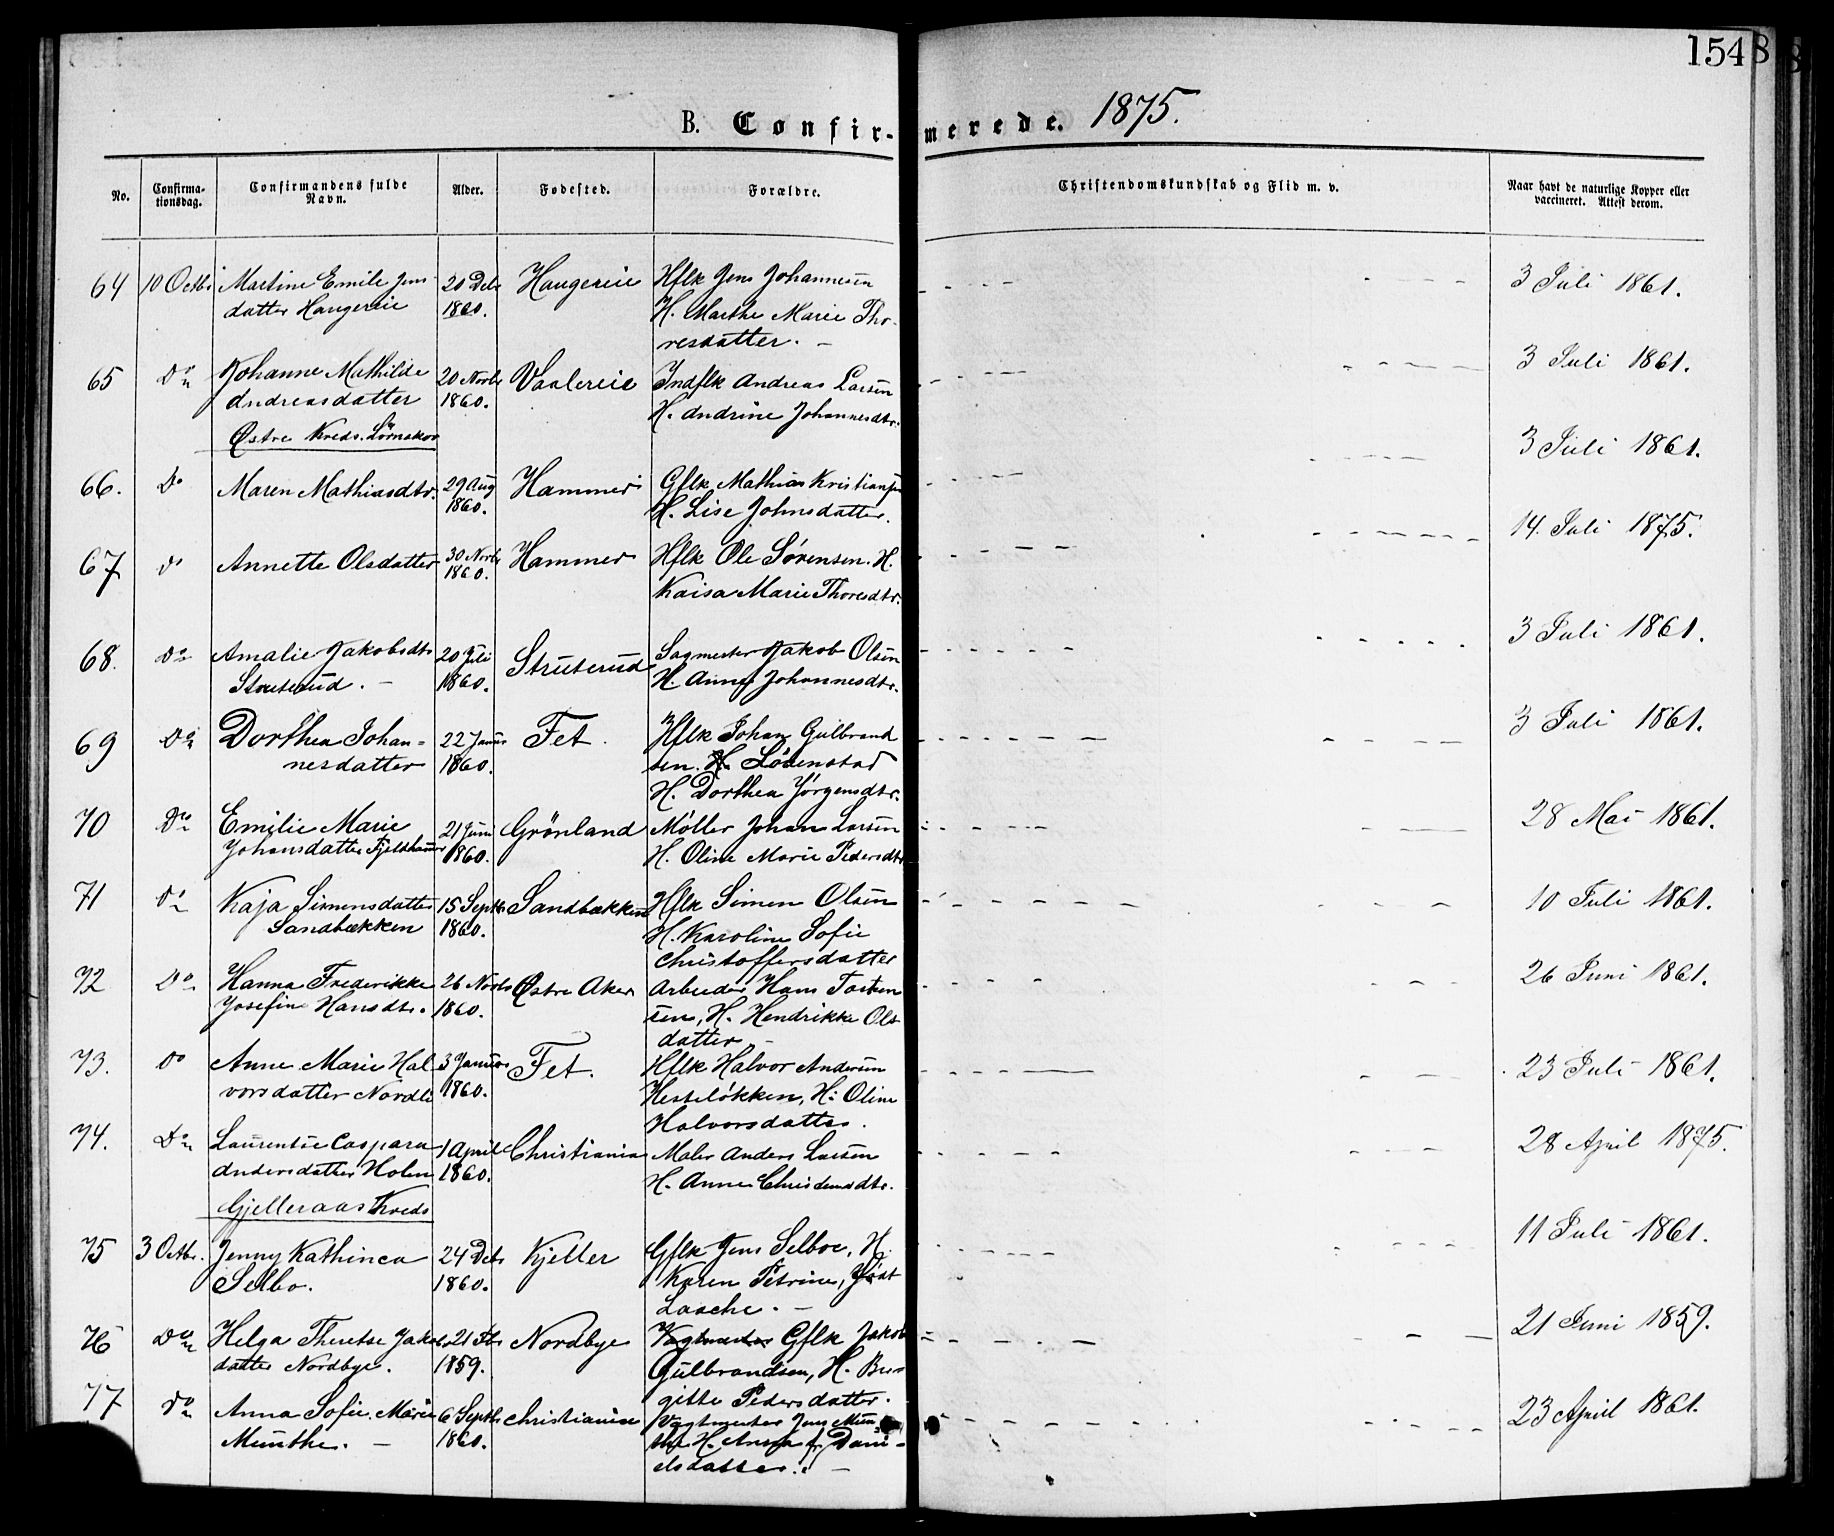 154
8
B. Confirmerede. 1875.
No. Confirmationsdag. Confirmandens fulde Navn. Alder. Fødested. Forældre. Christendomskundskab og Flid m. v. Naar havt de naturlige Kopper eller vaccineret. Attest derom.
64 10 Octbr Martine Emilie Jens 20 Debr Haugereie Hflk Jens Johannesen 3 Juli 1861.
datter Haugereie 1860. H. Marthe Marie Tho-
resdatter. –
65 Do Johanne Mathilde 20 Novbr Vaalereie Indflk Andreas Larsen 3 Juli 1861.
Andreasdatter 1860. H. Andrine Johannesdtr.
Østre Kreds. Lørnskov
66. Do Maren Mathiasdtr. 29 Aug Hammer Gflk Mathias Kristiansen 3 Juli 1861.
1860. H. Lise Johnsdatter.
67 Do Annette Olsdatter 30 Novbr Hammer Hflk Ole Sørensen. H. 14. Juli 1875.
1860. Kaisa Marie Thoresdtr.
68. Do Amalie Jakobsdtr 20 Juli Struterud Sagmester Jakob Olsen 3 Juli 1861.
Struterud. – 1860. H. Anne Johannesdtr.
69 Do Dorthea Johan= 22 Januar Fet. Hflk Johan Gulbrand 3 Juli 1861.
nesdatter 1860. sen. H. Løvenstad
H. Dorthea Jørgensdtr.
70 Do Emilie Marie 21 Juni Grønland Møller Johan Larsen 28 Mai 1861.
Johansdatter Fjeldhammer 1860. H. Oline Marie Pedersdtr
71 Do Kaja Simensdatter 15 Septbr Sandbækken Hflk Simen Olsen 10 Juli 1861.
Sandbækken 1860. H. Karoline Sofie
Christoffersdatter
72 Do Hanna Frederikke 26 Novbr Østre Aker Arbeider Hans Torsten 26 Juni 1861.
Josefine Hansdtr. 1860. sen, H. Hendrikke Ols
datter –
73. Do Anne Marie Hal 3 Januar Fet. Hflk Halvor Andersen 23 Juli 1861.
vorsdatter Nordli 1860. Hesteløkken, H. Oline
Halvorsdatter.
74. Do Laurentse Caspara 1 April Christiania Maler Anders Larsen 28 April 1875.
Andersdatter Holen 1860. H. Anne
Gjelleraas Kreds
75 3 Octbr. Jenny Kathinca 24 Debr Kjeller Gflk Jens Selboe, H. 11 Juli 1861.
Selbo. 1860. Karen Petrine, født
Laache. –
76 Do Helga Therese Jakobs 21 Nordbye Vagtmester Gflk Jakob 21 Juni 1859.
datter Nordbye. 1859. Gulbrandsen, H. Bir
gitte Pedersdatter.
77 Do Anna Sofie Marie 6 Septbr Christiania Vagtmester Jens Mun 23 April 1861.
Munthe. – 1860. the H. Anna f. Dani=
elsdatter. –